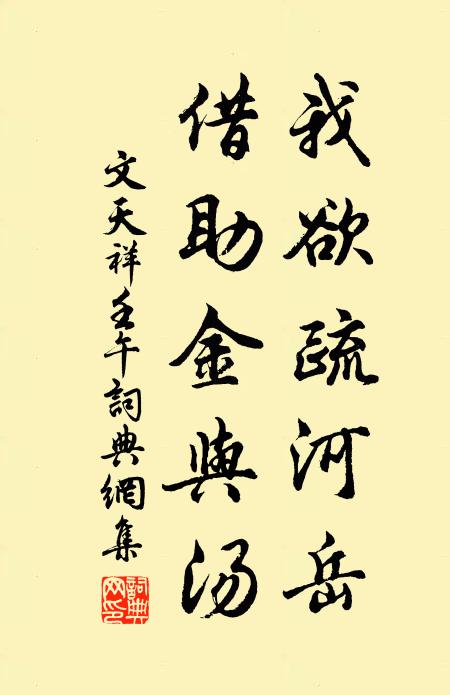 我欲疏河岳
借助金與汤
文天祥壬午詞典網集
詞典網印